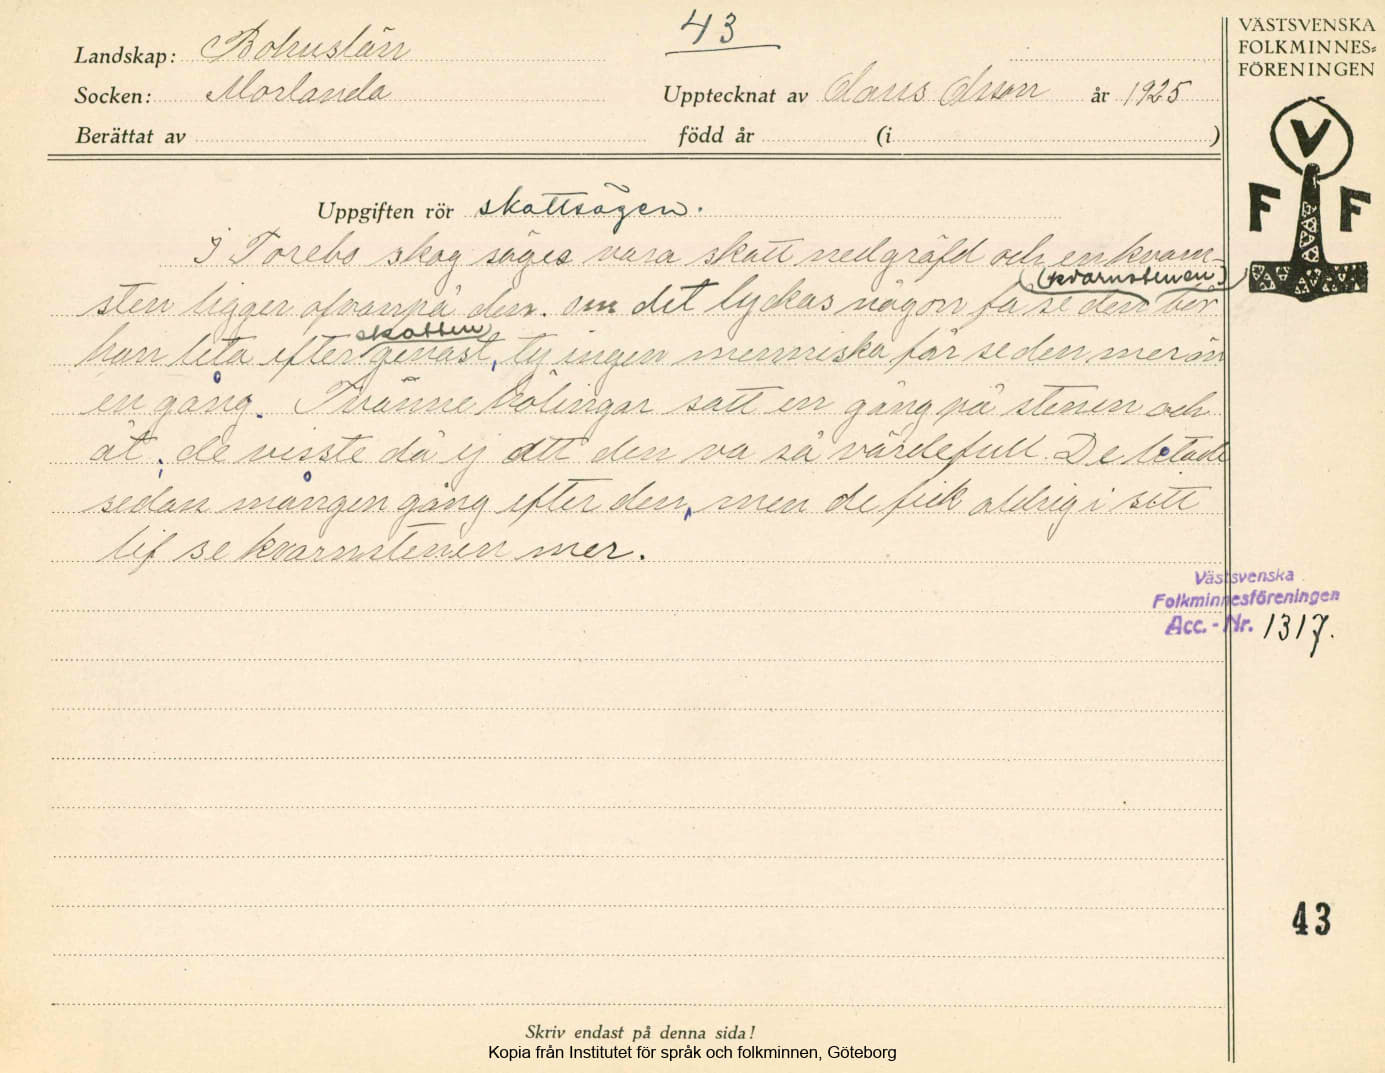 43
VÄSTSVENSKA
FOLKMINNES=
FÖRENINGEN
V
F F
Landskap: Bohuslän
Socken: Morlanda
Upptecknat av Claus Olsson år 1925
Berättat av född år (i )
Uppgiften rör skattsägen.
I Torebo skog säges vara skatt nedgräfd och en kvarn-
(kvarnstenen)
sten ligger ofvanpå den. om det lyckas någon få se den bör
skatten
han leta efter genast, ty ingen menniska får se den mer än
en gång. Tvänne kölingar satt en gång på stenen och
åt, de visste då ej att den va så värdefull. De letade
sedan mången gång efter den, men de fick aldrig i sitt
lif se kvarnstenen mer.
Västsvenska
Folkminnesföreningen
Acc.-Nr. 1317.
43
Skriv endast på denna sida!
Kopia från Institutet för språk och folkminnen, Göteborg